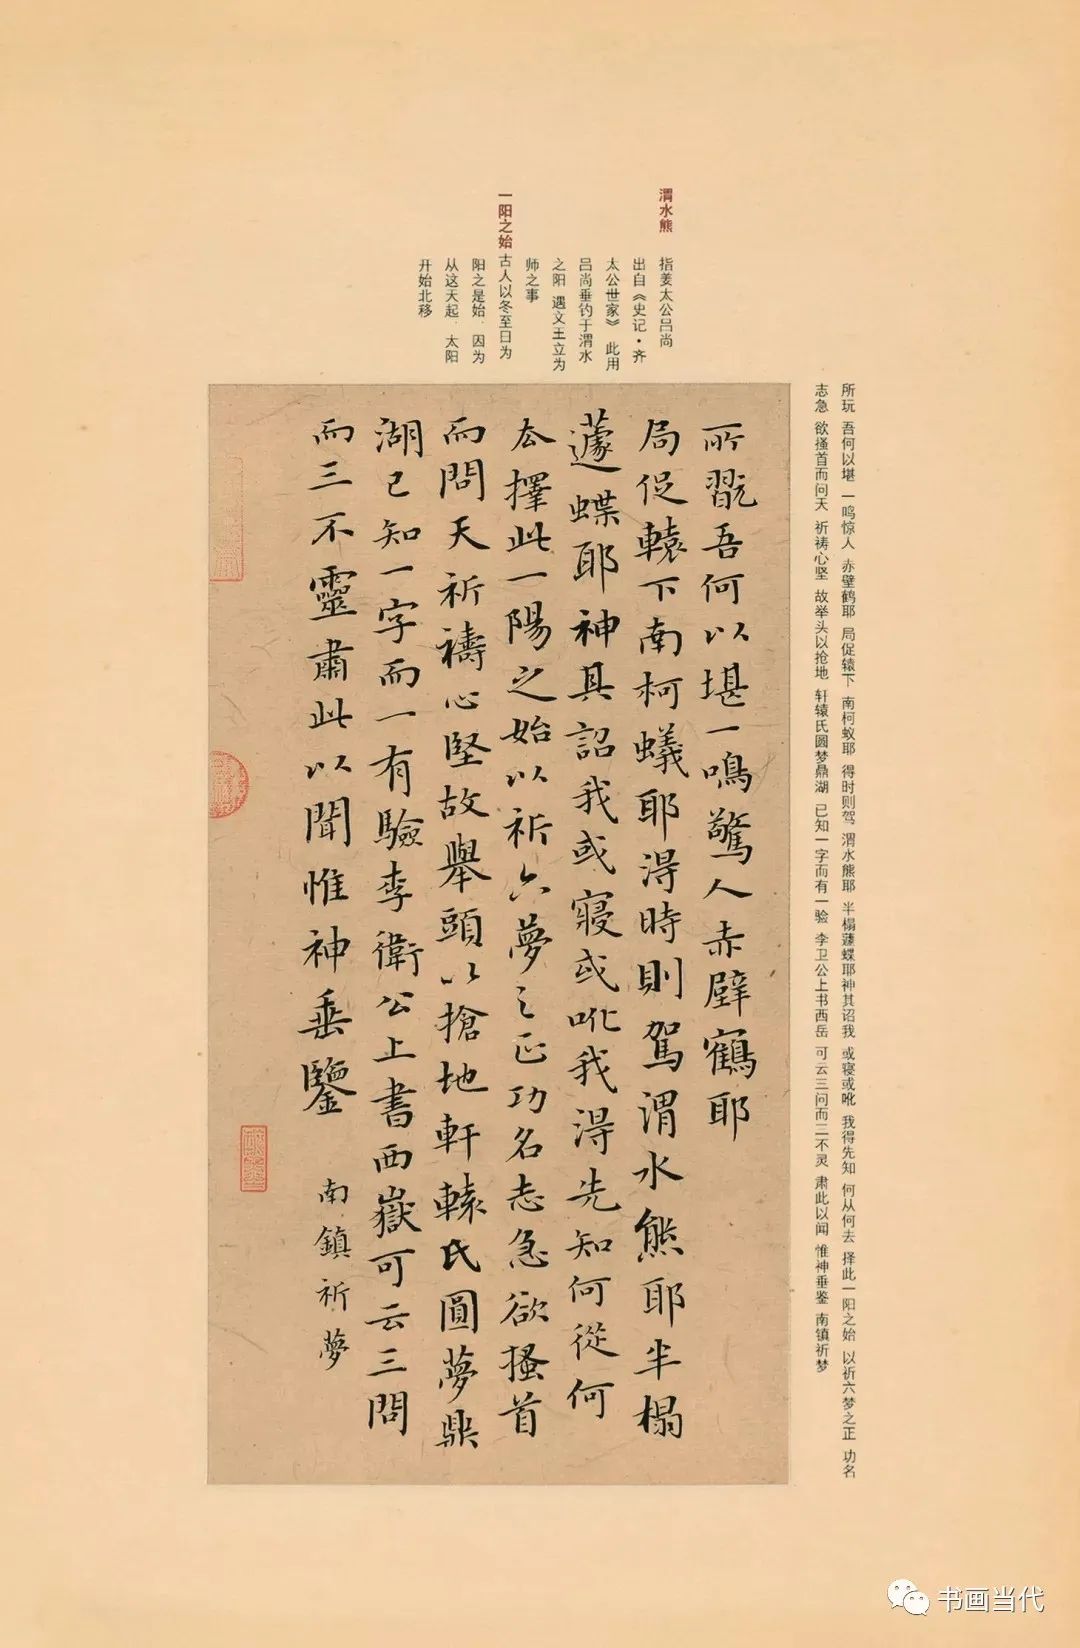 渭水熊
指姜太公吕尚
出自《史记·齐
太公世家》 此用
吕尚垂钓于渭水
之阳 遇文王立为
师之事
一阳之始
古人以冬至日为
阳之是始. 因为
从这天起. 太阳
开始北移
所玩 吾何以堪 一鸣惊人 赤壁鹤耶 局促辕下 南柯蚁耶 得时则驾 渭水熊耶 半榻蘧蝶耶神其诏我 或寝或吪 我得先知 何从何去 择此一阳之始 以祈六梦之正 功名
志急 欲搔首而问天 祈祷心坚 故举头以抢地 轩辕氏圆梦鼎湖 已知一字而有一验 李卫公上书西岳 可云三问而三不灵 肃此以闻 惟神垂鉴 南镇祈梦
所翫吾何以堪一鳴驚人赤壁鶴耶
局促轅下南柯蟻耶得時則駕渭水熊耶半榻
蘧蝶耶神具詔我或寢或吪我得先知何從何
去擇此一陽之始以祈六夢之正功名志急欲搔首
而問天祈禱心堅故舉頭以搶地軒轅氏圓夢鼎
湖已知一字而一有驗李衛公上書西嶽可云三問
而三不靈肅此以聞惟神垂鑒 南鎮祈夢
书画当代